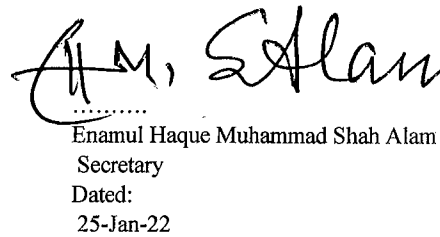 HM. S Alam
..........
Enamul Haque Muhammad Shah Alam
Secretary
Dated:
25-Jan-22